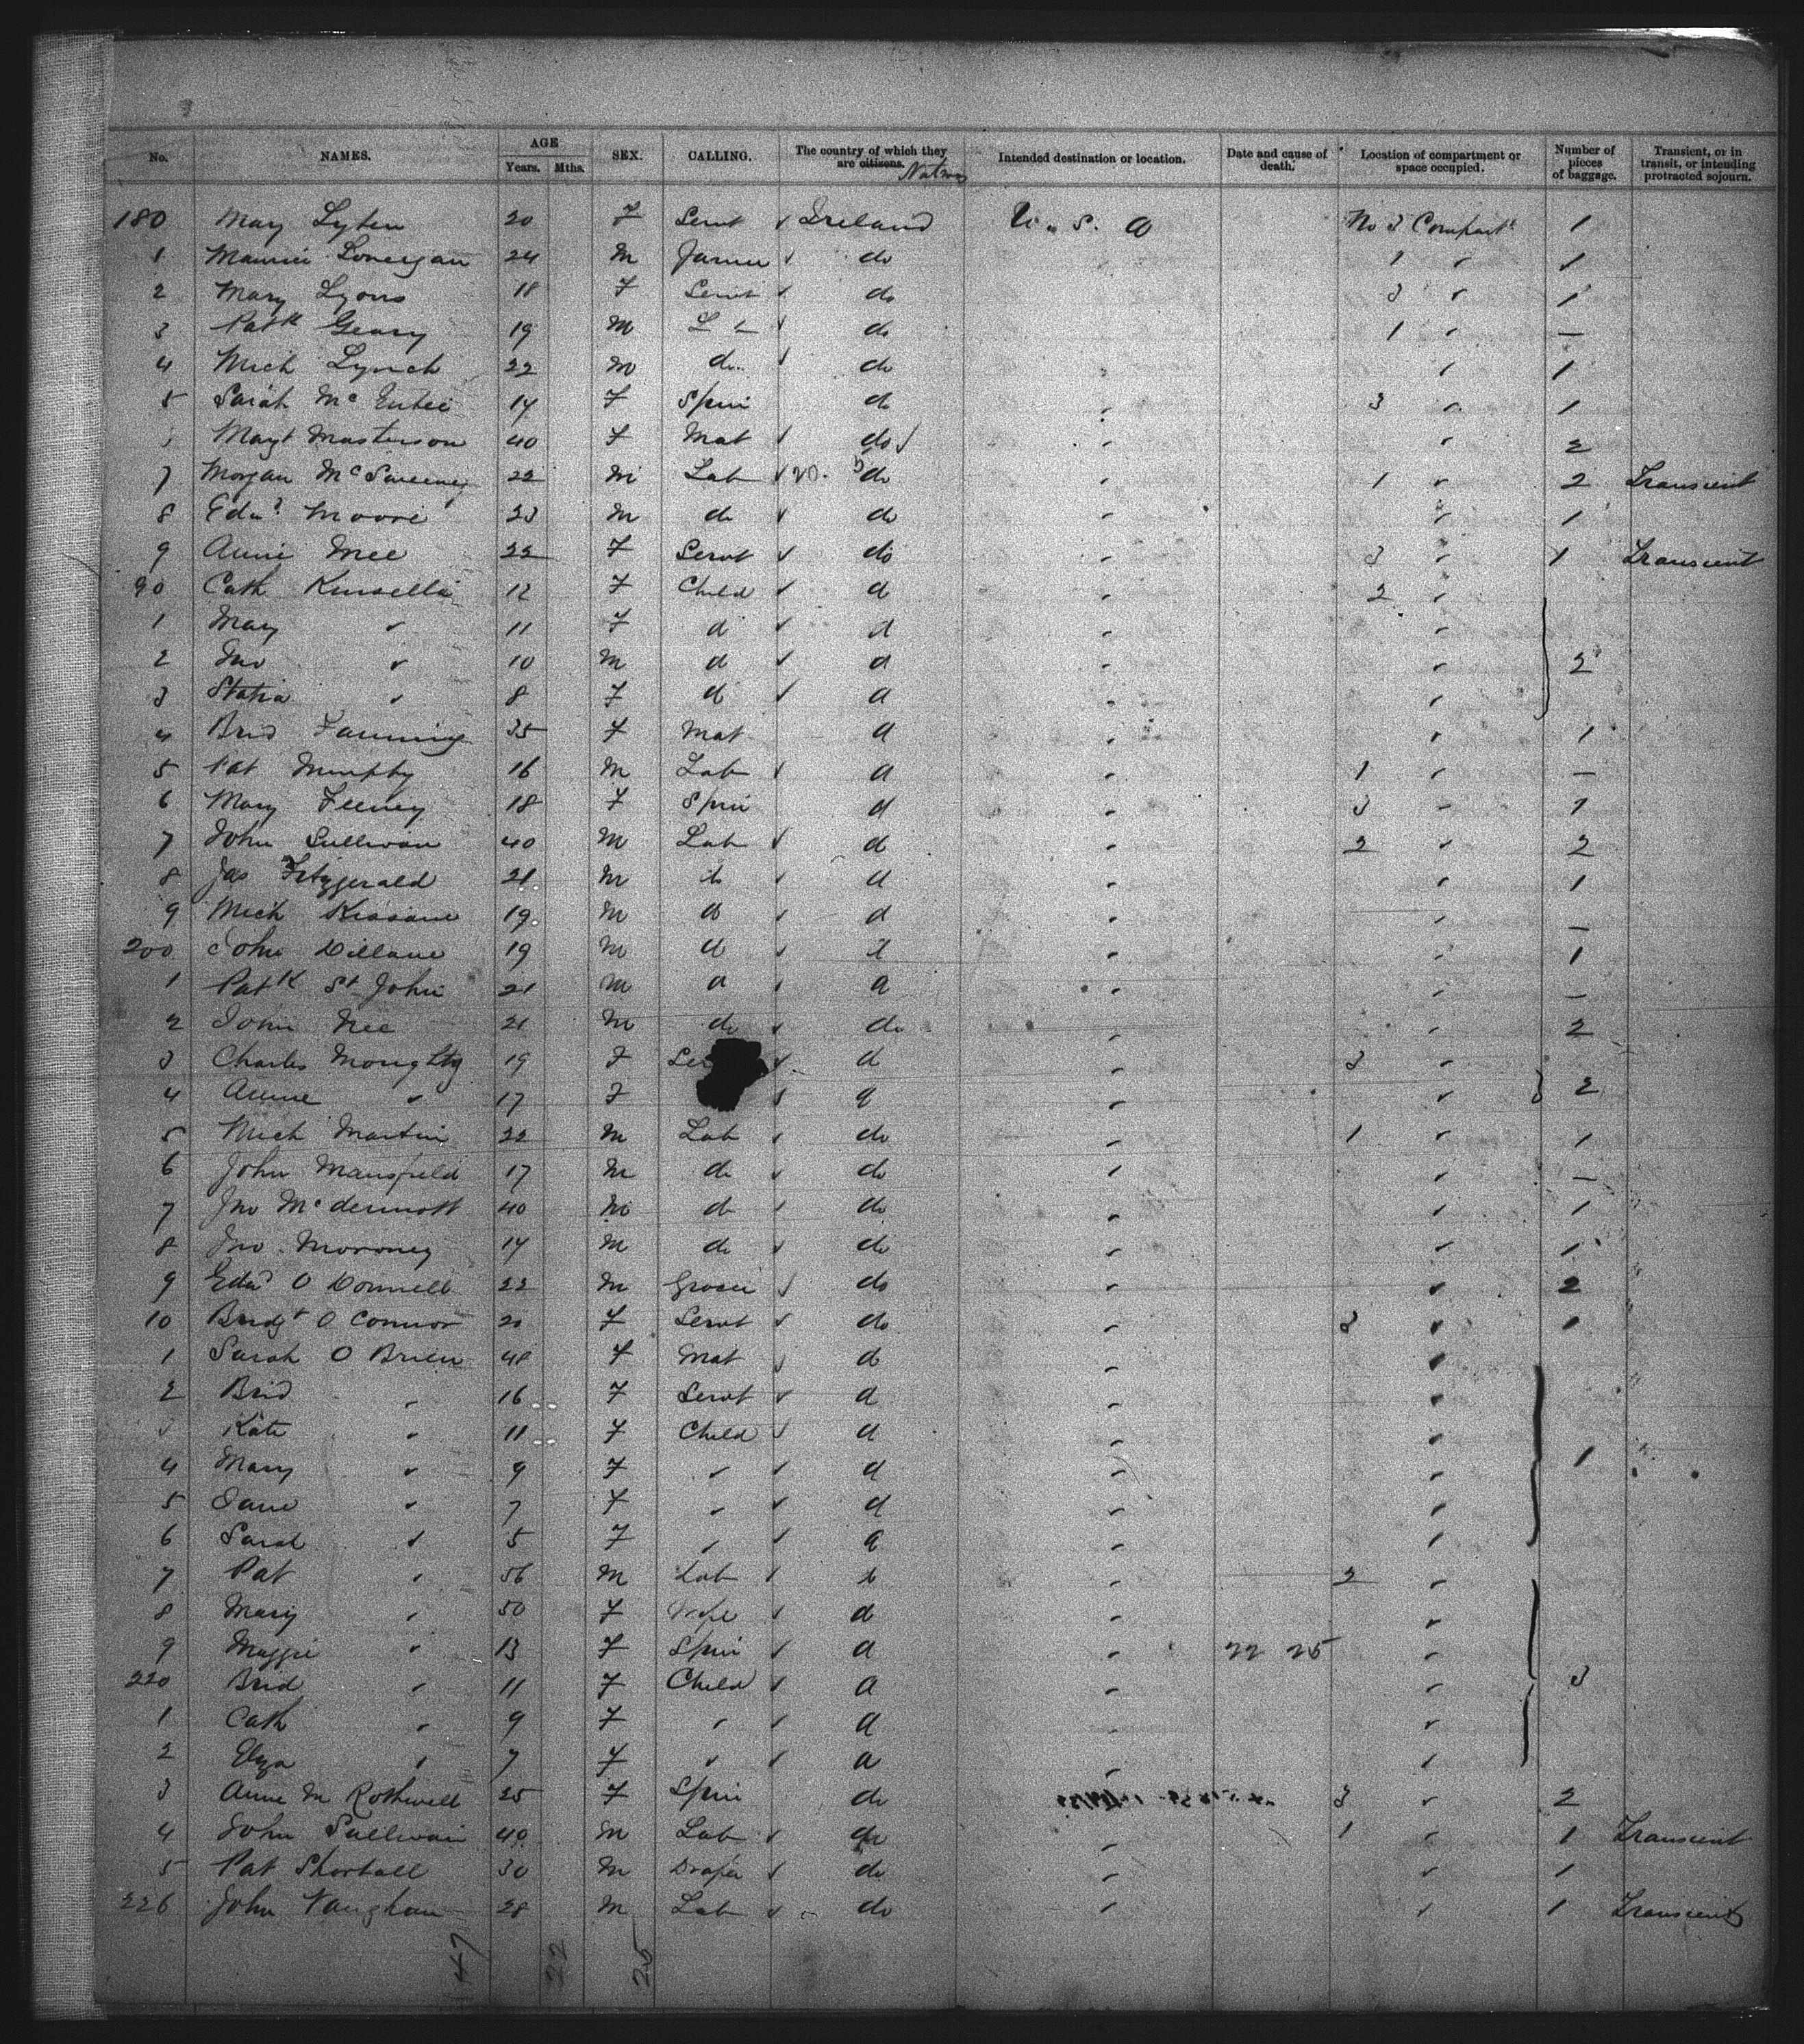 No. NAMES. AGE Years. Mths. SEX. CALLING. The country of which they are citizens. Natives Intended destination or location. Date and cause of death. Location of compartment or space occupied. Number of pieces of baggage. Transient, or in transit, or intending protracted sojourn.
180 Mary Lyten 20 F Servt Ireland U. S. A No 3 Compart 1
1 Maurice Lonergan 24 M Farmer do 1 " 1
2 Mary Lyons 18 F Servt do 3 " 1
3 Patk Geary 19 M do 1 " —
4 Mich Lynch 22 M do do " 1
5 Sarah Mc Entee 17 F Spin do " 3 " 1
Magt Masterson 40 F Mat do " " 2
7 Morgan Mc Sweeney 22 M Lab do " 1 " 2 Transient
8 Edwd Moore 23 M do do " " 1
9 Annie Mee 22 F Servt do " 3 " 1 Transient
90 Cath Kinsella 12 F Child d " 2 "
1 Mary " 11 F d d " "
2 Jno " 10 M d d " " 2
3 Statia " 8 F d d " "
4 Brid Fanning 35 F Mat d " " 1
5 Pat Murphy 16 M Lab d " 1 " —
6 Mary Feeney 18 F Spin d " 3 " 1
7 John Sullivan 40 M Lab d " 2 " 2
8 Jas Fitzgerald 21 M d d " " 1
9 Mich Kissane 19 M d d " " —
200 John Dillane 19 M d d " " 1
1 Patk St John 21 M d d " " —
2 John Nee 21 M do do " " 2
3 Charles Moughty 19 F Ser d " 3 "
4 Annie " 17 F d " " 2
5 Mich Martin 22 M Lab do " 1 " 1
6 John Mansfield 17 M do do " " —
7 Jno Mc dermott 40 M do do " " 1
8 Jno Moroney 17 M do do " " 1
9 Edwd O Donnell 22 M Grocer do " " 2
10 Bridgt O Connor 20 F Servt do " 3 " 1
1 Sarah O Brien 48 F Mat do " "
2 Brid " 16 F Servt d " "
3 Kate " 11 F Child d " "
4 Mary " 9 F " d " " 1
5 Jane " 7 F " d " "
6 Sarah " 5 F " d " "
7 Pat " 56 M Lab d " 2 "
8 Mary " 50 F Wife d " "
9 Maggie " 13 F Spin d " 22 25 "
220 Brid " 11 F Child d " " 3
1 Cath " 9 F " d " "
2 Eliza " 7 F " d " "
3 Anne M Rothwell 25 F Spin do 3 " 2
4 John Sullivan 40 M Lab do " 1 " 1 Transient
5 Pat Shortall 30 M Draper do " " 1
226 John Vaughan 28 M Lab do " " 1 Transient
147 22 25